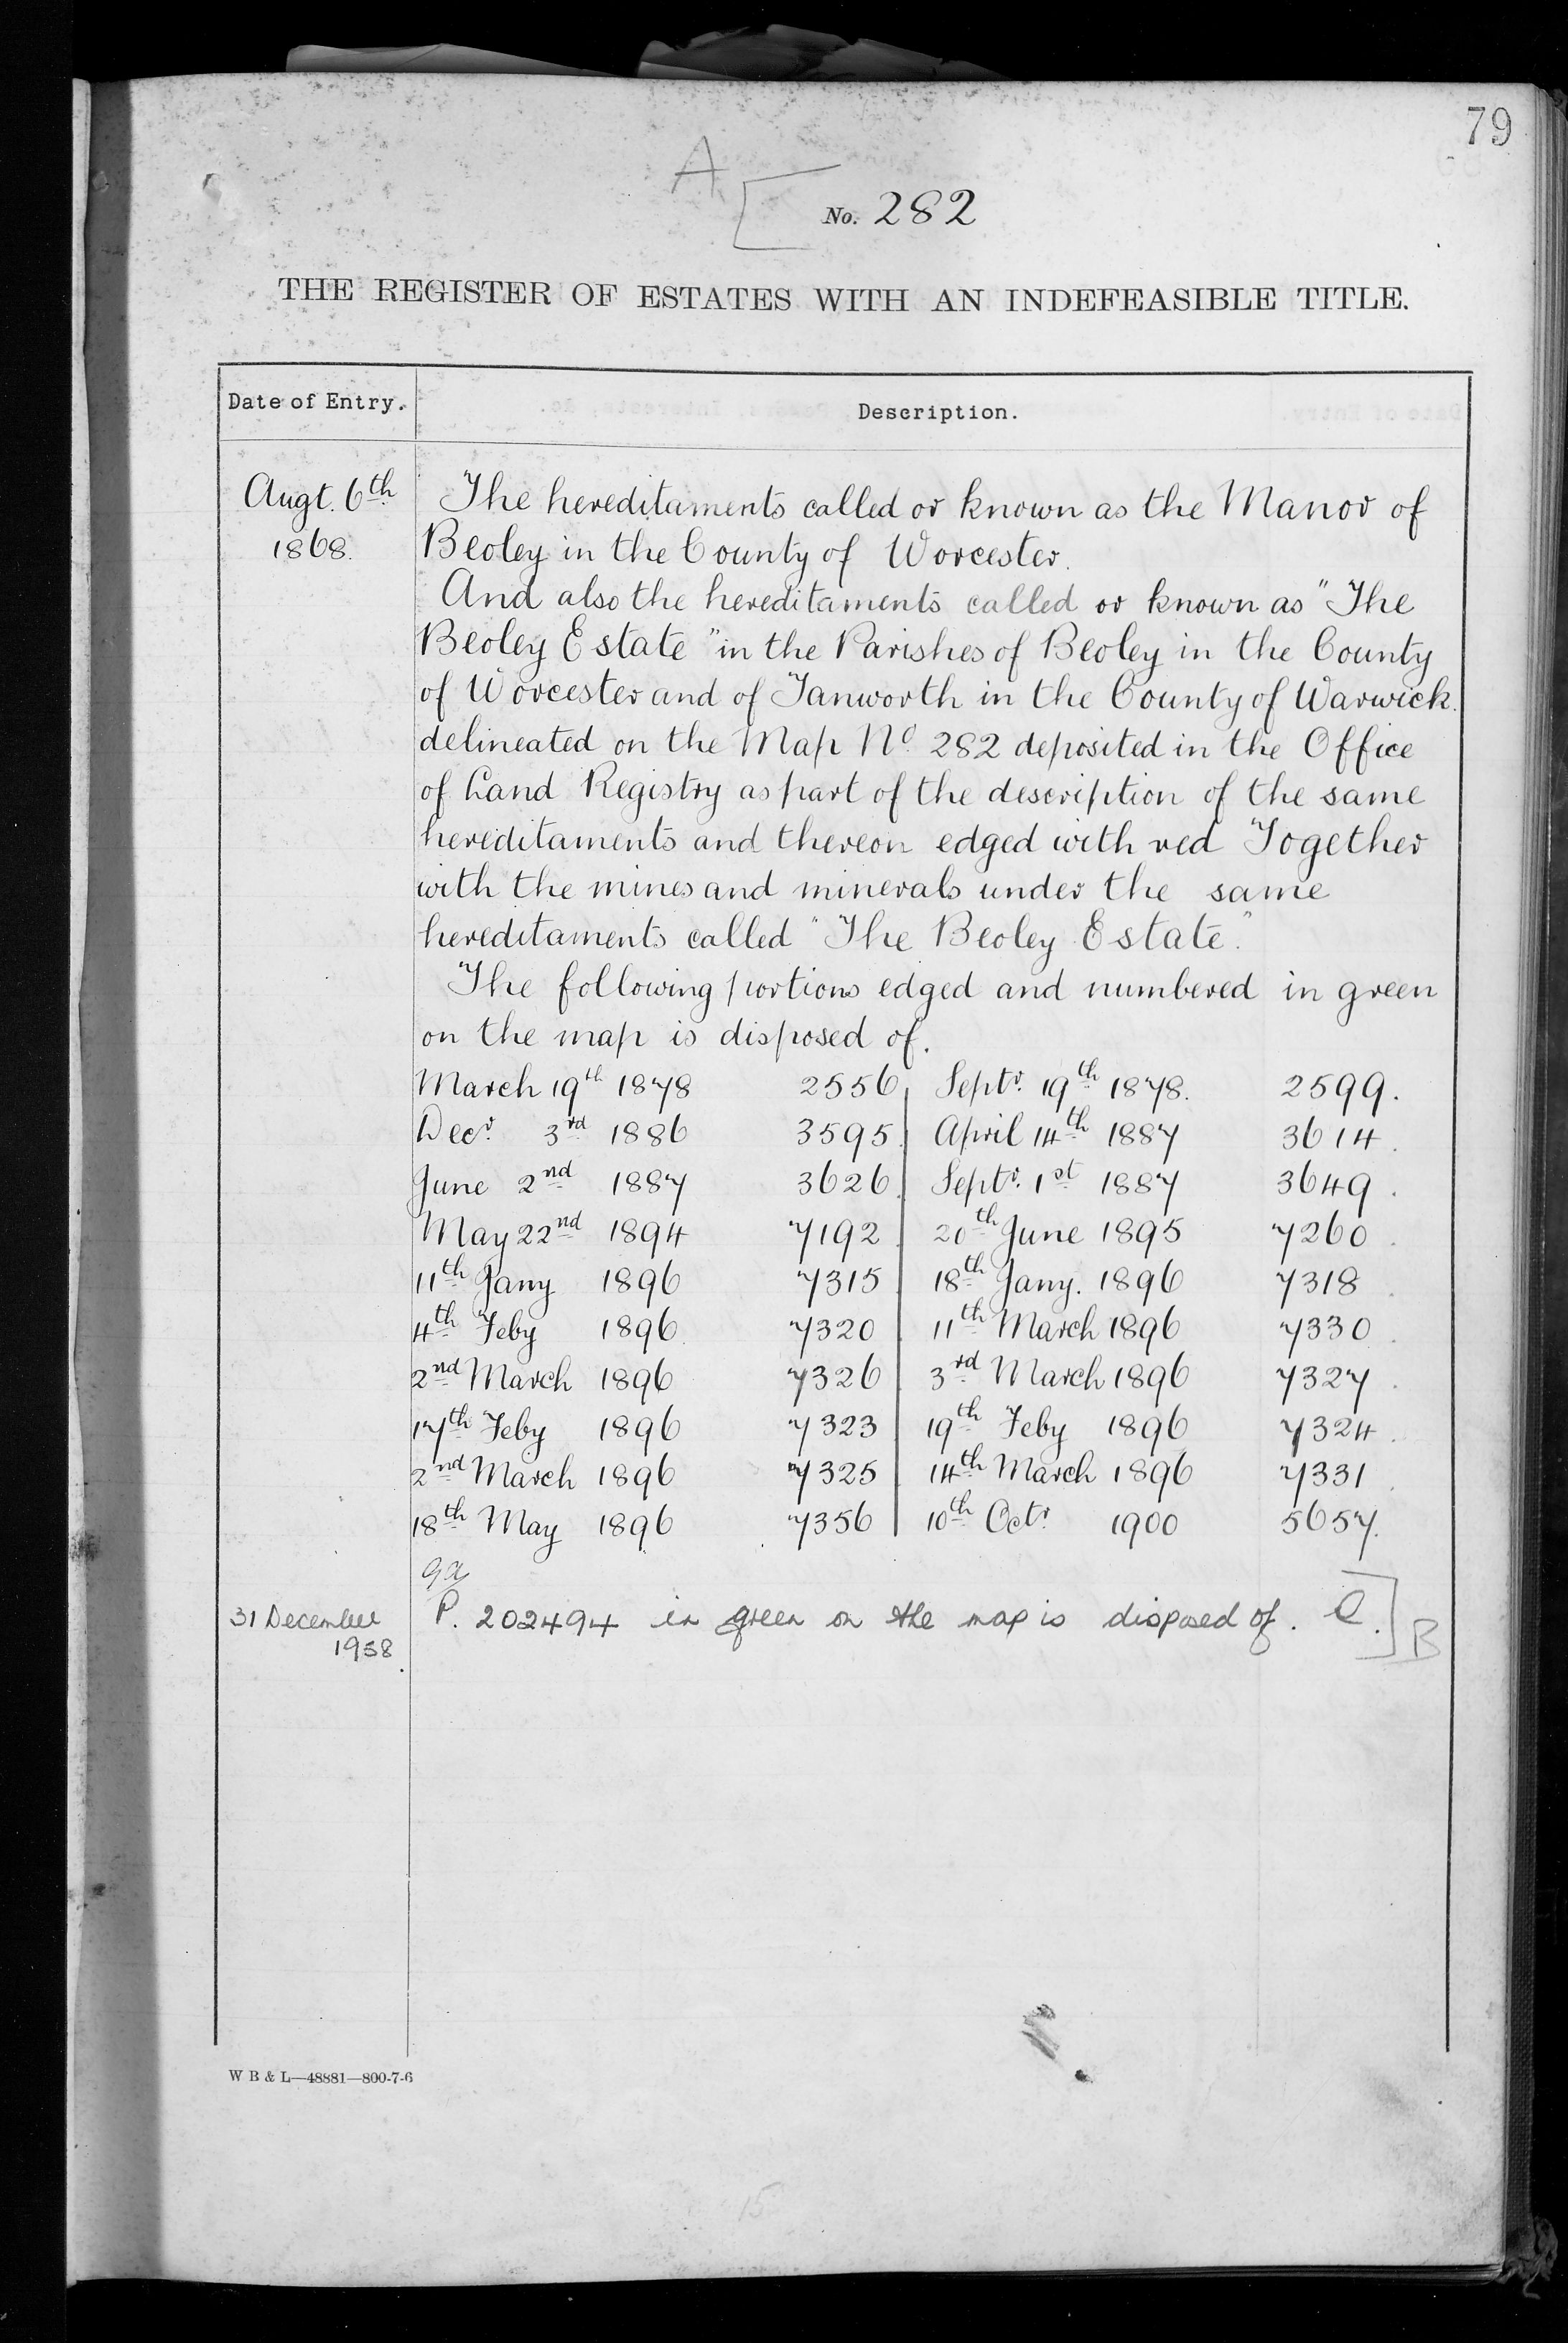 79
A
No. 282
THE REGISTER OF ESTATES WITH AN INDEFEASIBLE TITLE.
Date of Entry. Description.
Augt. 6th The hereditaments called or known as the Manor of
1868. Beoley in the County of Worcester.
And also the hereditaments called or known as "The
Beoley Estate" in the Parishes of Beoley in the County
of Worcester and of Tanworth in the County of Warwick.
delineated on the Map No. 282 deposited in the Office
of Land Registry as part of the description of the same
hereditaments and thereon edged with red Together
with the mines and minerals under the same
hereditaments called "The Beoley Estate."
The following portions edged and numbered in green
on the map is disposed of.
March 19th 1878 2556 Septr. 19th 1878. 2599.
Decr. 3rd 1886 3595 April 14th 1887 3614.
June 2nd 1887 3626 Septr. 1st 1887 3649.
May 22nd 1894 7192 20th June 1895 7260.
11th Jany 1896 7315 18th Jany. 1896 7318.
4th Feby 1896 7320 11th March 1896 7330.
2nd March 1896 7326 3rd March 1896 7327.
17th Feby 1896 7323 19th Feby 1896 7324.
2nd March 1896 7325 14th March 1896 7331.
18th May 1896 7356 10th Octr. 1900 5657.
31 December P. 202494 in green on the map is disposed of.
1958. B
W B & L—48881—800-7-6
15